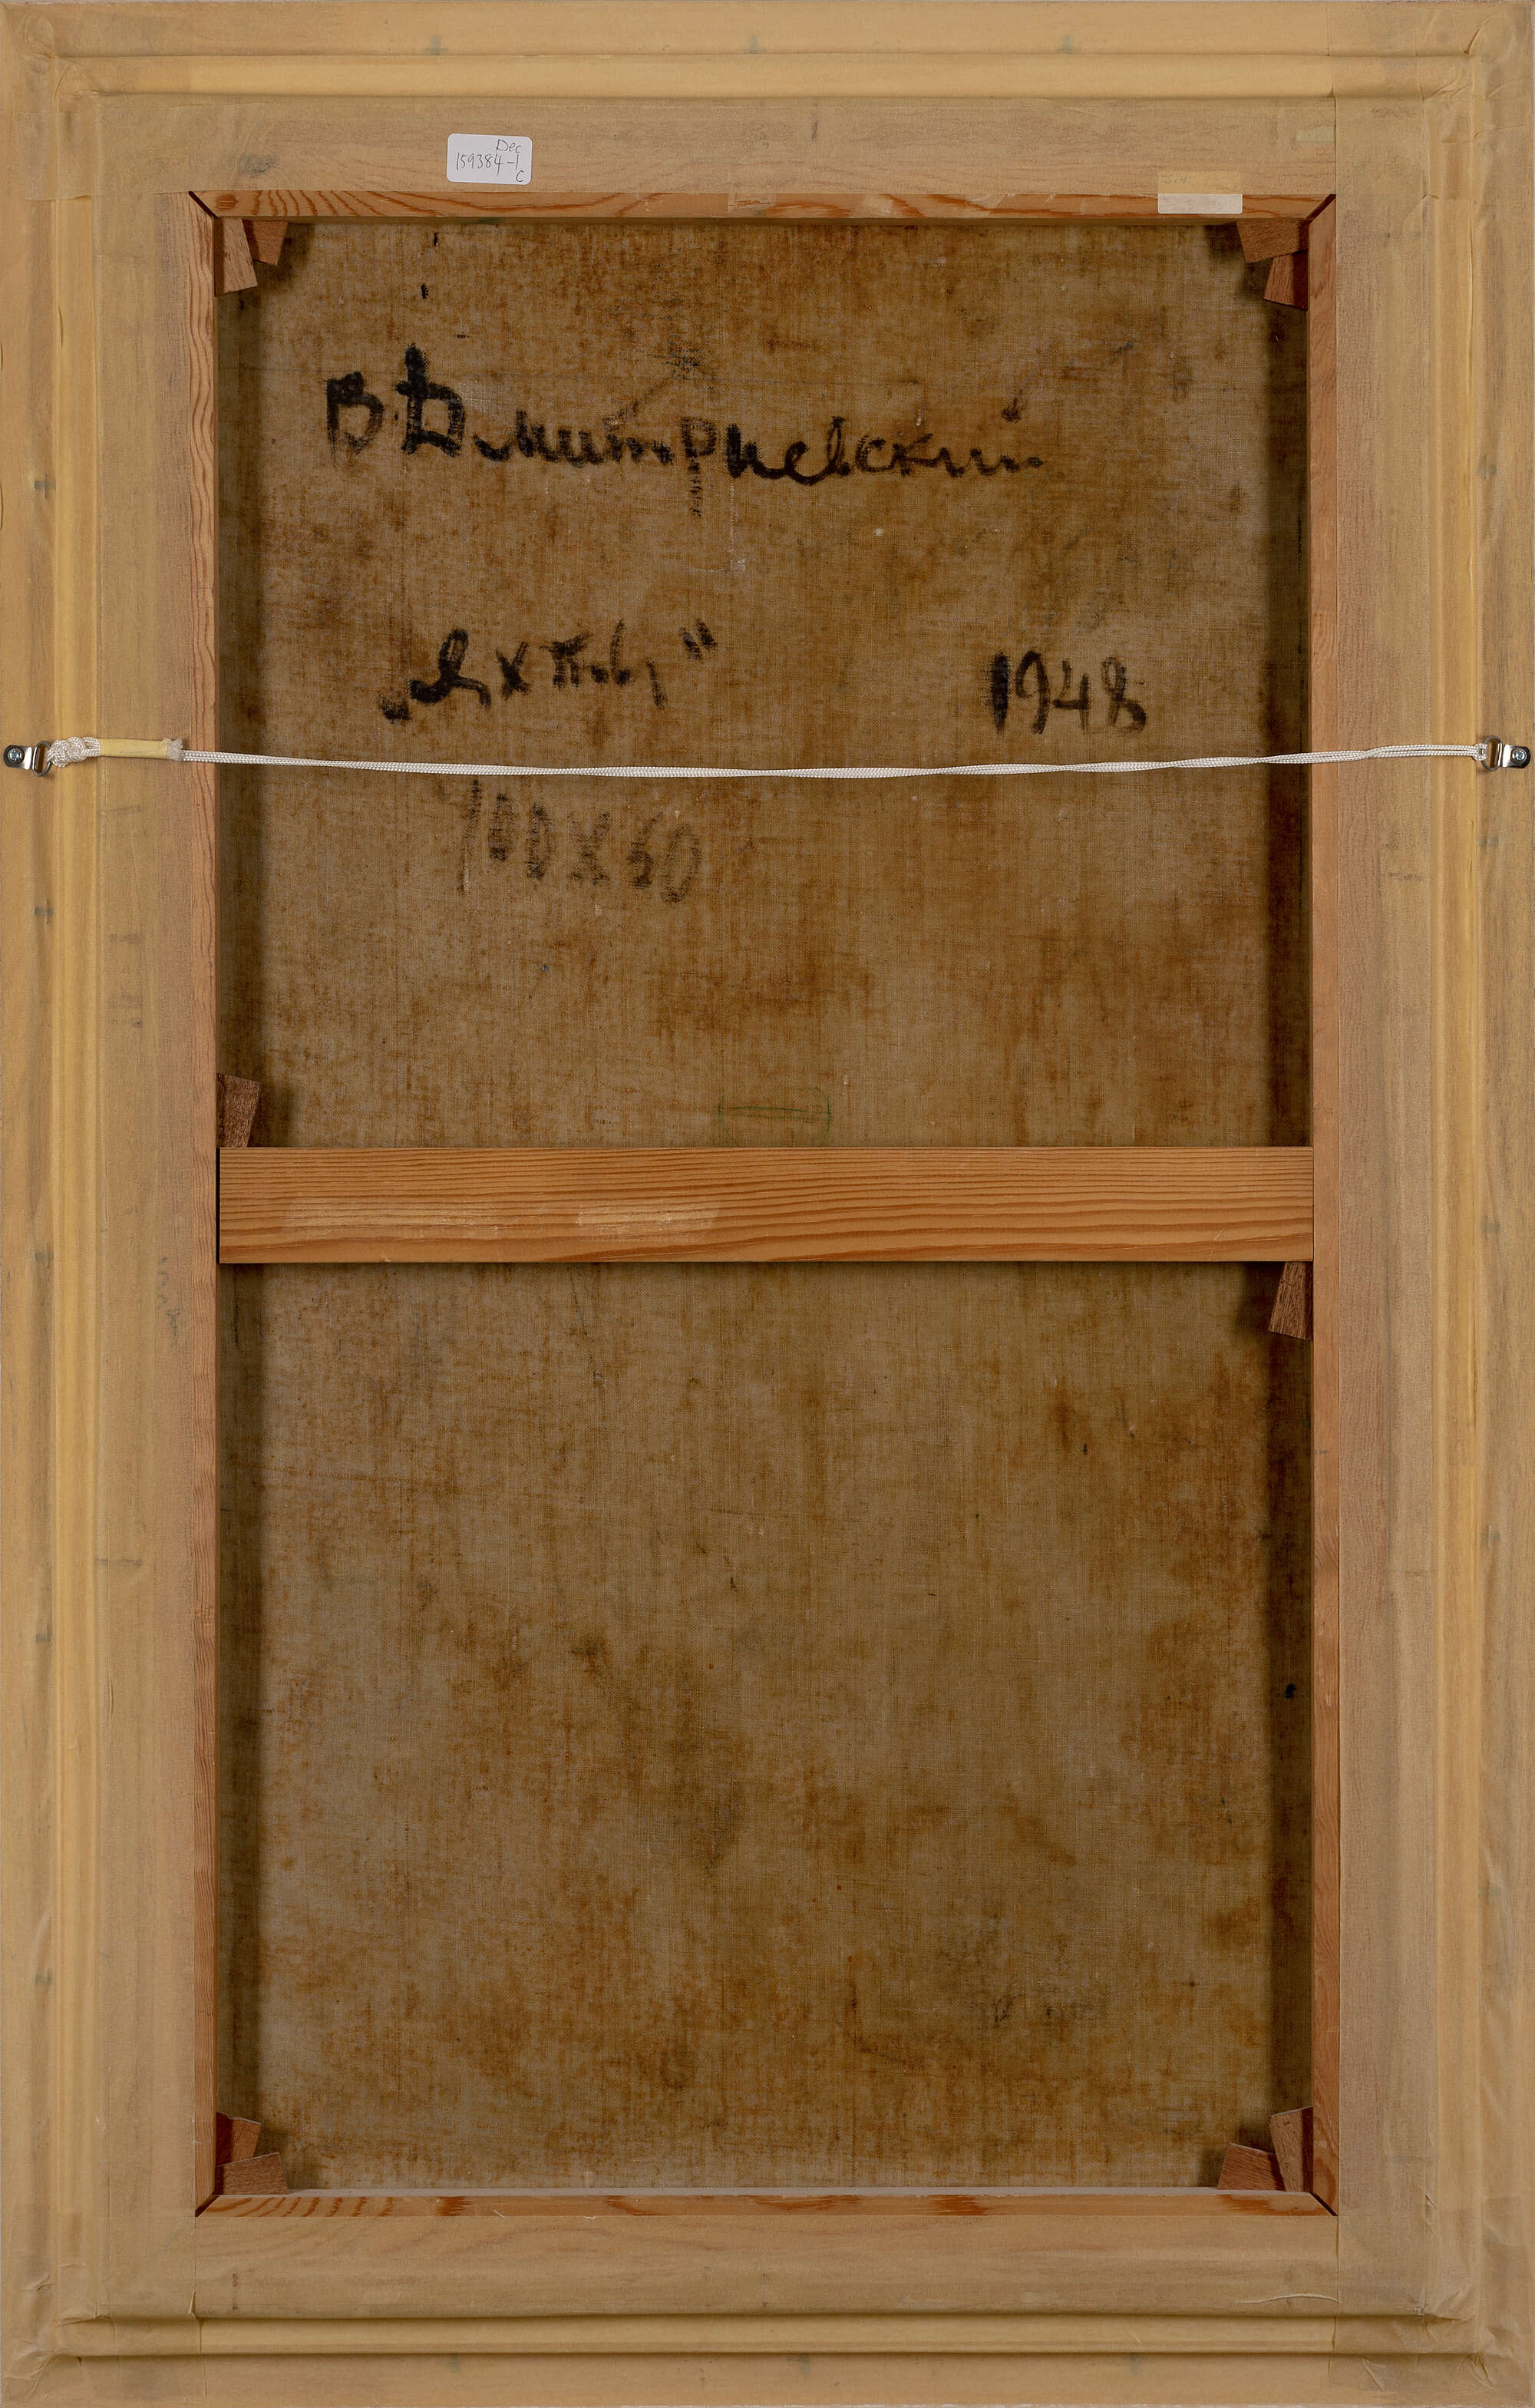 Dec
159384-1
C
В. Дмитриевский
„Яхты"
1948
100X60